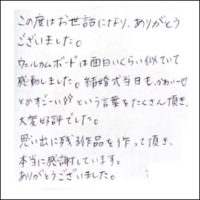 この度はお世話になり、ありがとう
ございました。
ウェルカムボードは面白いくらい似ていて
感動しました。結婚式当日も、かわいーせ
とかすごーい!!という言葉をたくさん頂き、
大変好評でした。
思い出に残る作品を作って頂き、
本当に感謝しています。
ありがとうございました。